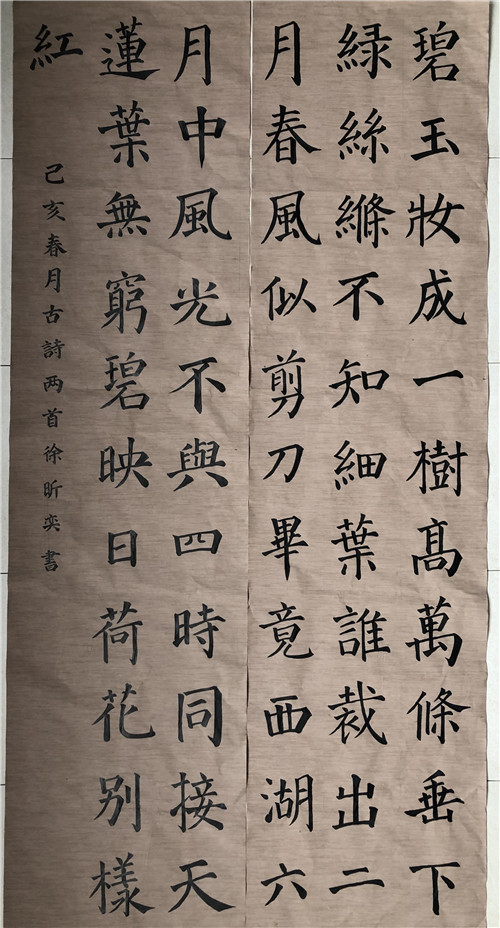 碧玉妝成一樹髙萬條垂下
緑絲縧不知細葉誰裁出二
月春風似剪刀畢竟西湖六
月中風光不與四時同接天
蓮葉無窮碧映日荷花别樣
紅
己亥春月古詩两首徐昕奕書